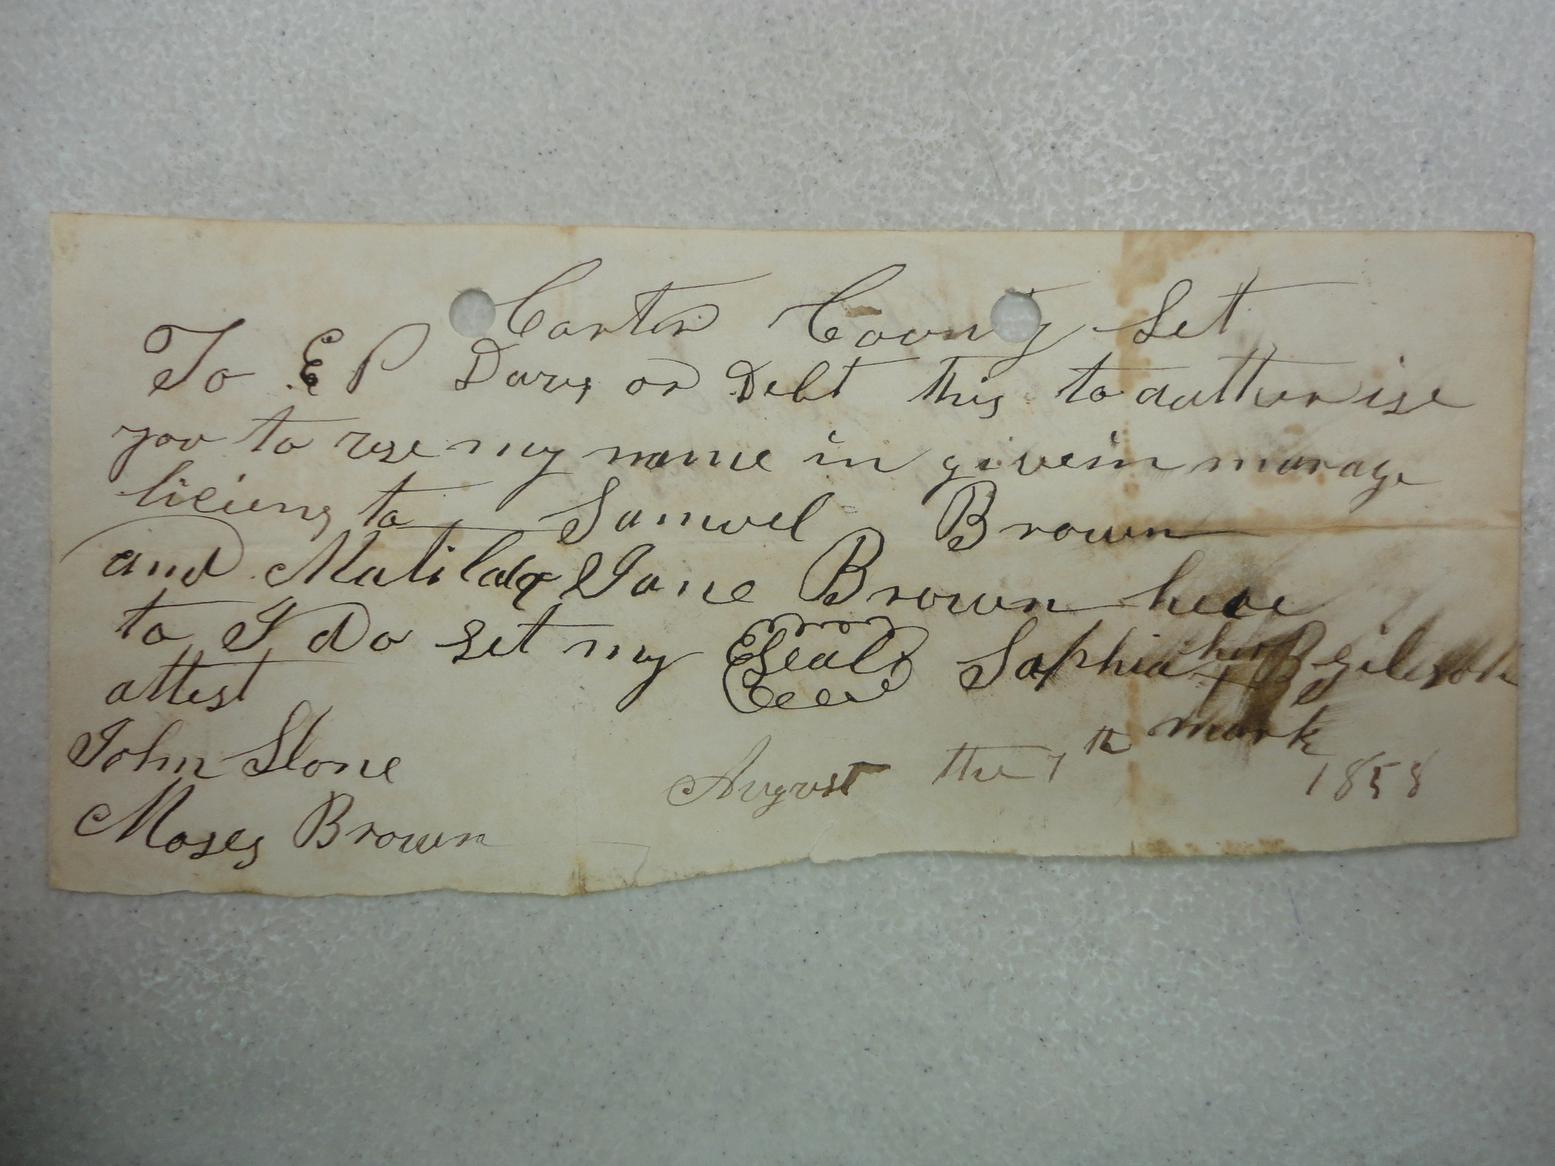 Carter Couny Set
To E P Davis or Debt this to autherise
you to use my name in givein marage
liciens to Samuel Brown
and Matilda Jane Brown here
to I do set my Seal Saphia her B gibson
attest mark
John Slone August the 7th 1858
Moses Brown